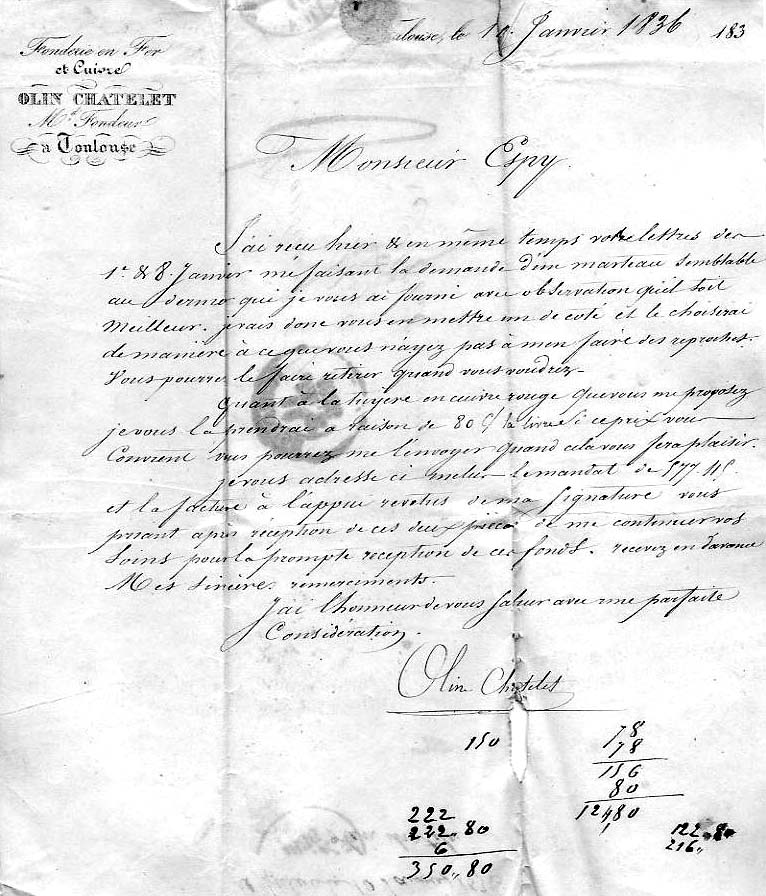 Toulouse, le 10 Janvier 1836 183
Fonderie en Fer
et Cuivre
OLIN CHATELET
Md. Fondeur
à Toulouse
Monsieur Espy.
J'ai recu hier & en même temps votre lettres des
1er. & 8. Janvier me faisant la demande d'un marteau semblable
au dernier que je vous ai fourni avec observation qu'il soit
meilleur. je vais donc vous en mettre un de coté et le choiserai
de manière à ce que vous n'ayez pas à m'en faire des reproches.
Vous pourrez le faire retirer quand vous voudrez-
Quant à la tuyere en cuivre rouge que vous me proposez
je vous la prendrai a raison de 80 c/ la livre si ce prix vous
Convient vous pourrez me l'envoyer quand cela vous fera plaisir.
je vous adresse ci inclus le mandat de 577.45.
et la facture à l'appui revetus de ma signature vous
priant après réception de ces deux pièces de me continuer vos
Soins pour la prompte reception de ces fonds. recevez en d'avance
Mes sincères remerciments.
J'ai l'honneur de vous saluer avec une parfaite
Considération.
Olin Chatelet
150
78
78
156
80
12480
222
222.80
6
350,,80
122.80
216,,